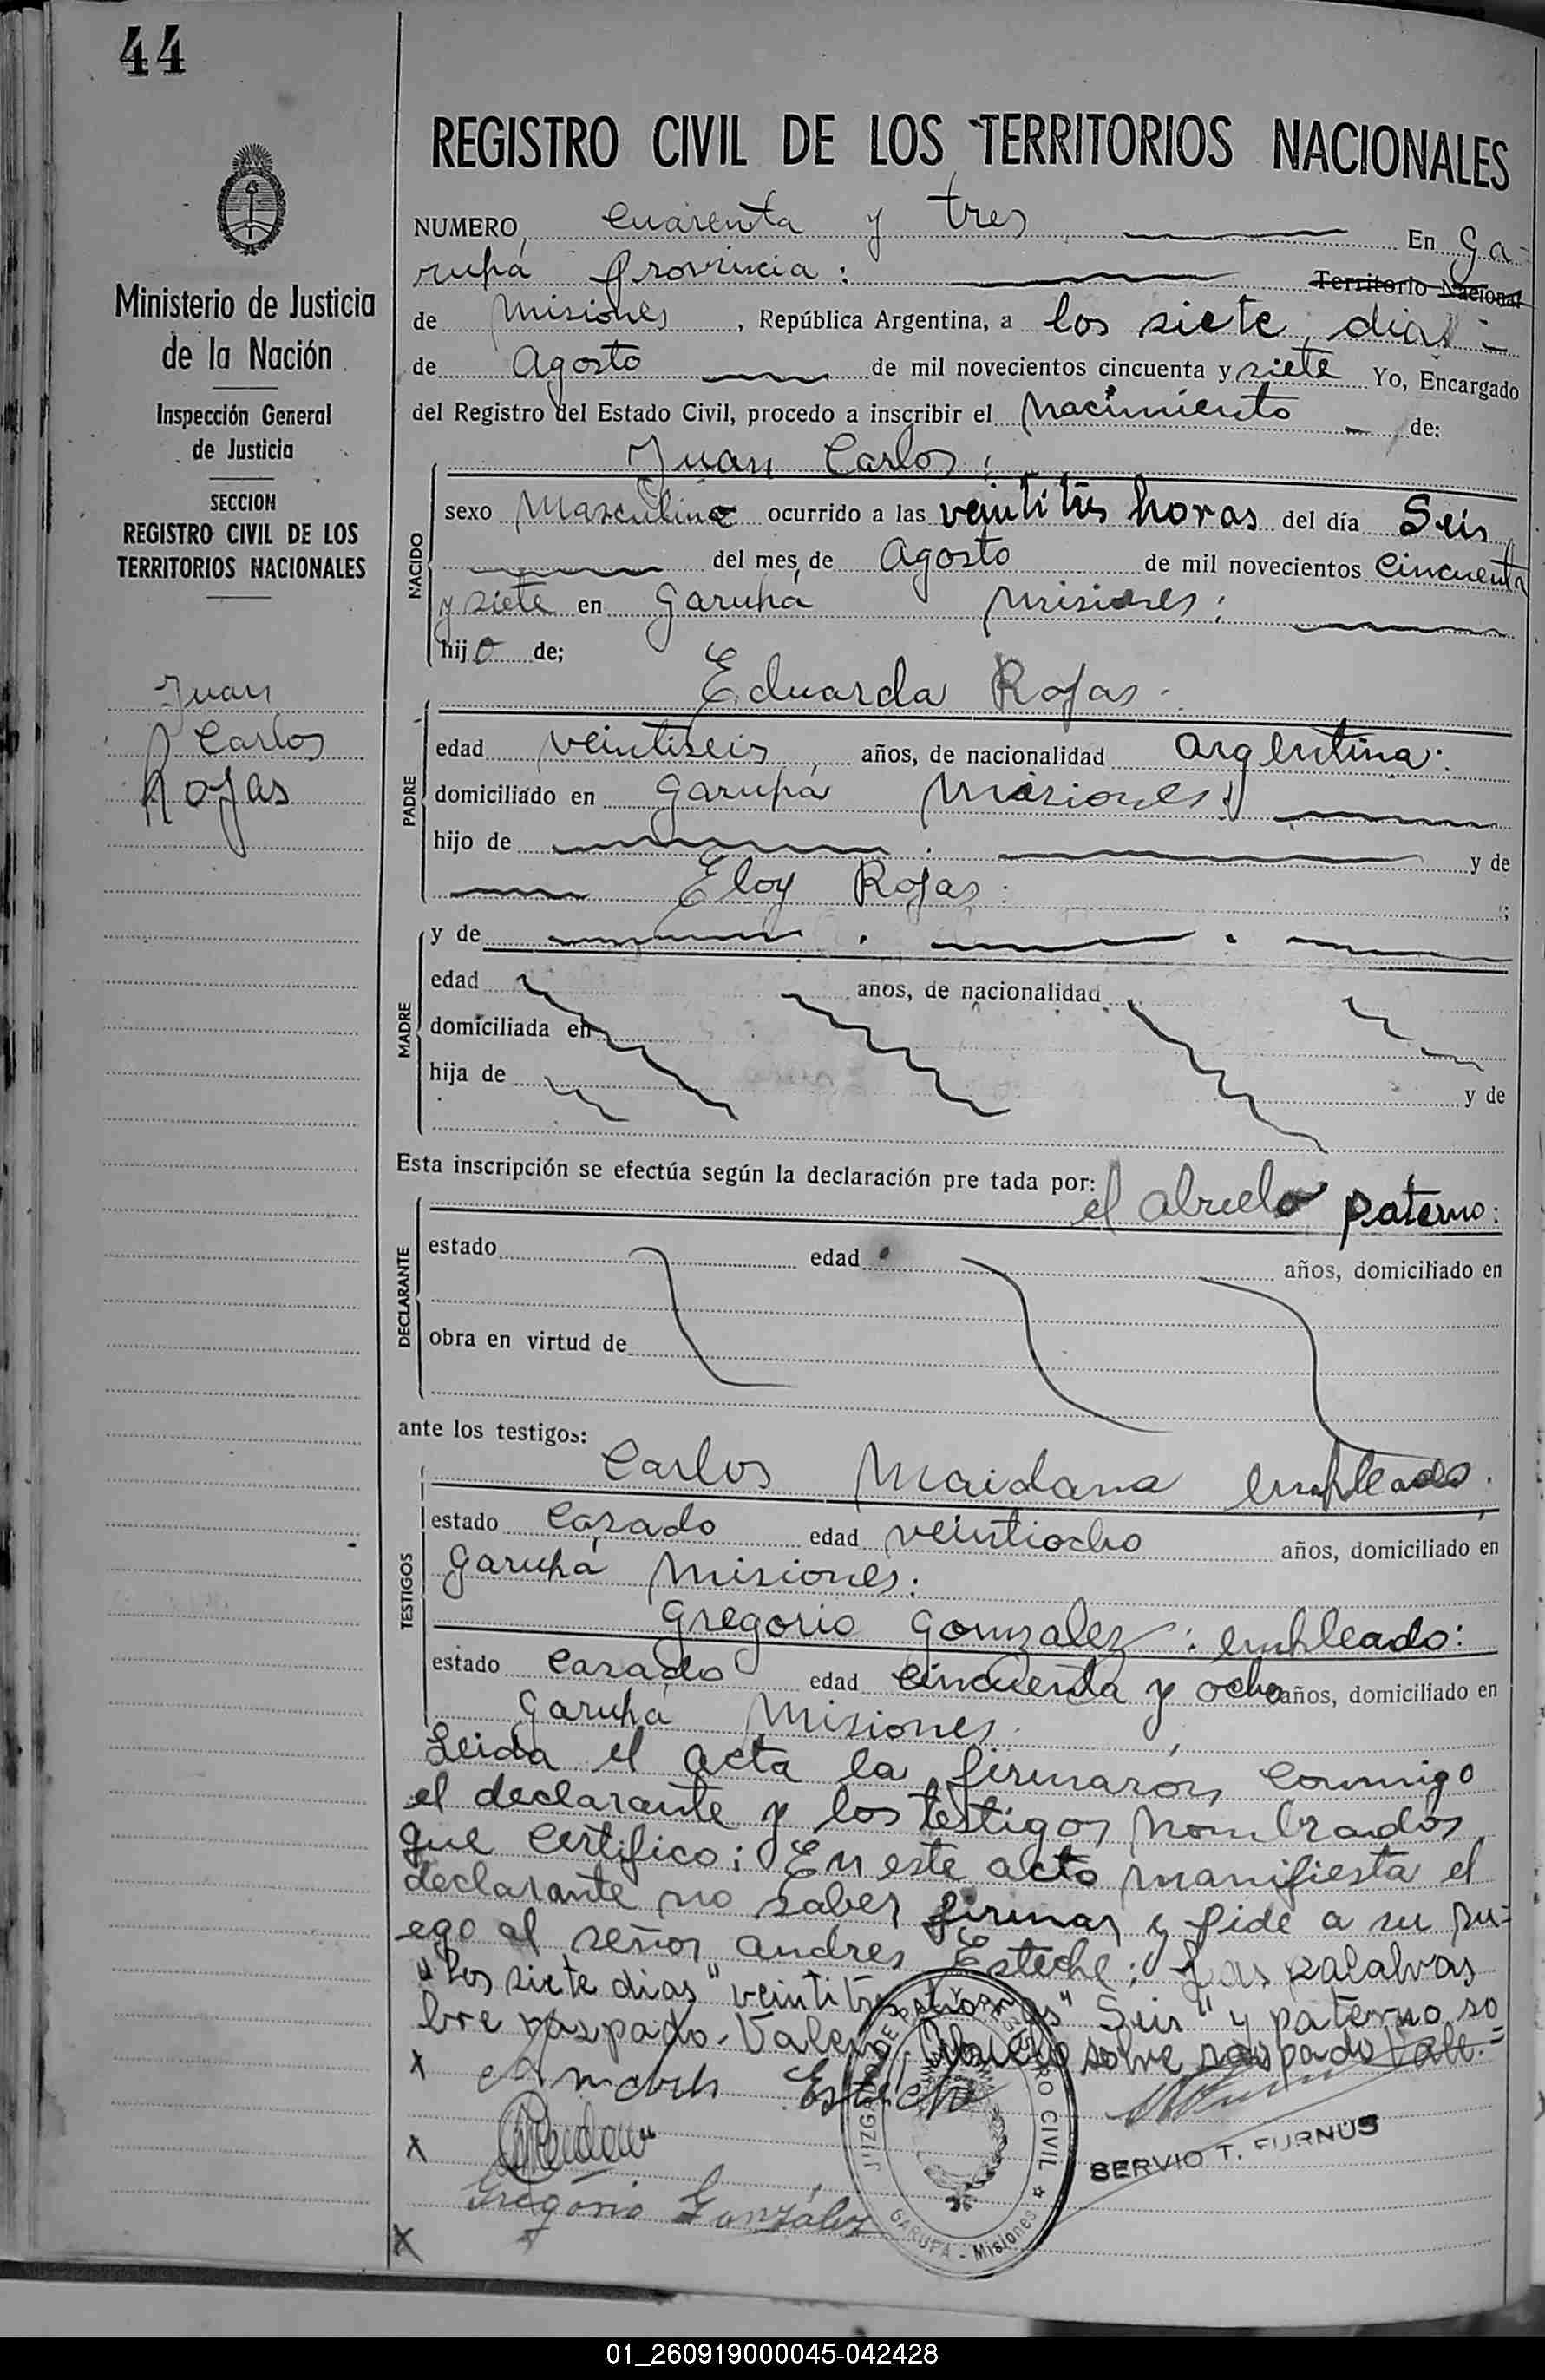 44
REGISTRO CIVIL DE LOS TERRITORIOS NACIONALES
Ministerio de Justicia
de la Nación
Inspección General
de Justicia
SECCION
REGISTRO CIVIL DE LOS
TERRITORIOS NACIONALES
Juan
Carlos
Rojas
NUMERO, cuarenta y tres En Ga-
rupá Provincia: Territorio Nacional
de Misiones, República Argentina, a los siete dias
de Agosto de mil novecientos cincuenta y siete Yo, Encargado
del Registro del Estado Civil, procedo a inscribir el Nacimiento de:
NACIDO
Juan Carlos:
sexo Masculino ocurrido a las veintitrés horas del día Seis
del mes de Agosto de mil novecientos cincuenta
y siete en Garupá Misiones:
hijo de;
PADRE
Eduarda Rojas.
edad veintiseis años, de nacionalidad argentina.
domiciliado en Garupá Misiones:
hijo de y de
Eloy Rojas:
MADRE
y de
edad años, de nacionalidad
domiciliada en
hija de y de
Esta inscripción se efectúa según la declaración pre tada por:
el abuelo paterno:
DECLARANTE
estado edad años, domiciliado en
obra en virtud de
ante los testigos:
TESTIGOS
Carlos Maidana empleado.
estado Casado edad veintiocho años, domiciliado en
Garupá Misiones:
Gregorio Gonzalez: empleado:
estado casado edad cincuenta y ocho años, domiciliado en
Garupá Misiones.
Leida el acta la firmarón conmigo
el declarante y los testigos nombrados
que certifico: En este acto manifiesta el
declarante no saber firmar y pide a su ru=
ego al señor andres Esteche: Las palabras
"los siete dias" veintitres horas" Seis" y paterno so
bre raspado. Valen. Abuelo sobre raspado Vale.=
x Andres Esteche
x
Gregorio González
x
SERVIO T. FURNUS
JUZGADO DE PAZ Y REGISTRO CIVIL
GARUPA - Misiones
01_260919000045-042428